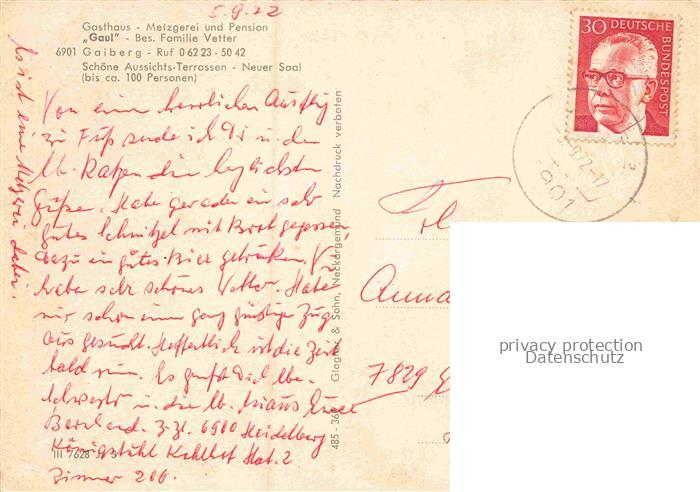 5.9.72
Gasthaus - Metzgerei und Pension
„Gaul" - Bes. Familie Vetter
6901 Gaiberg - Ruf 0 62 23 - 50 42
Schöne Aussichts-Terrassen - Neuer Saal
(bis ca. 100 Personen)
Es ist eine Metzgerei dabei.
Von einem herrlichen Ausflug
zu Fuß sende ich Dir u. den
lb. Katzen die herzlichsten
Grüße. Habe gerade ein sehr
gutes Schnitzel mit Brot gegessen
dazu ein gutes Bier getrunken. Wir
haben sehr schönes Wetter. Habe
mir schon einen ganz günstige Zug
aus gesucht. Hoffentlich ist die Zeit
bald rum. Es grüßt Dich lbe.
Schwester u. die lb. Miaus Euer
Bernhard. z. Zt. 6900 Heidelberg
Königstuhl Kohlhof Stat. 2
Zimmer 206.
III 7628
485 - 36
Glogner & Sohn, Neckargemünd Nachdruck verboten
30 DEUTSCHE
BUNDESPOST
901
Anna
7829
privacy protection
Datenschutz